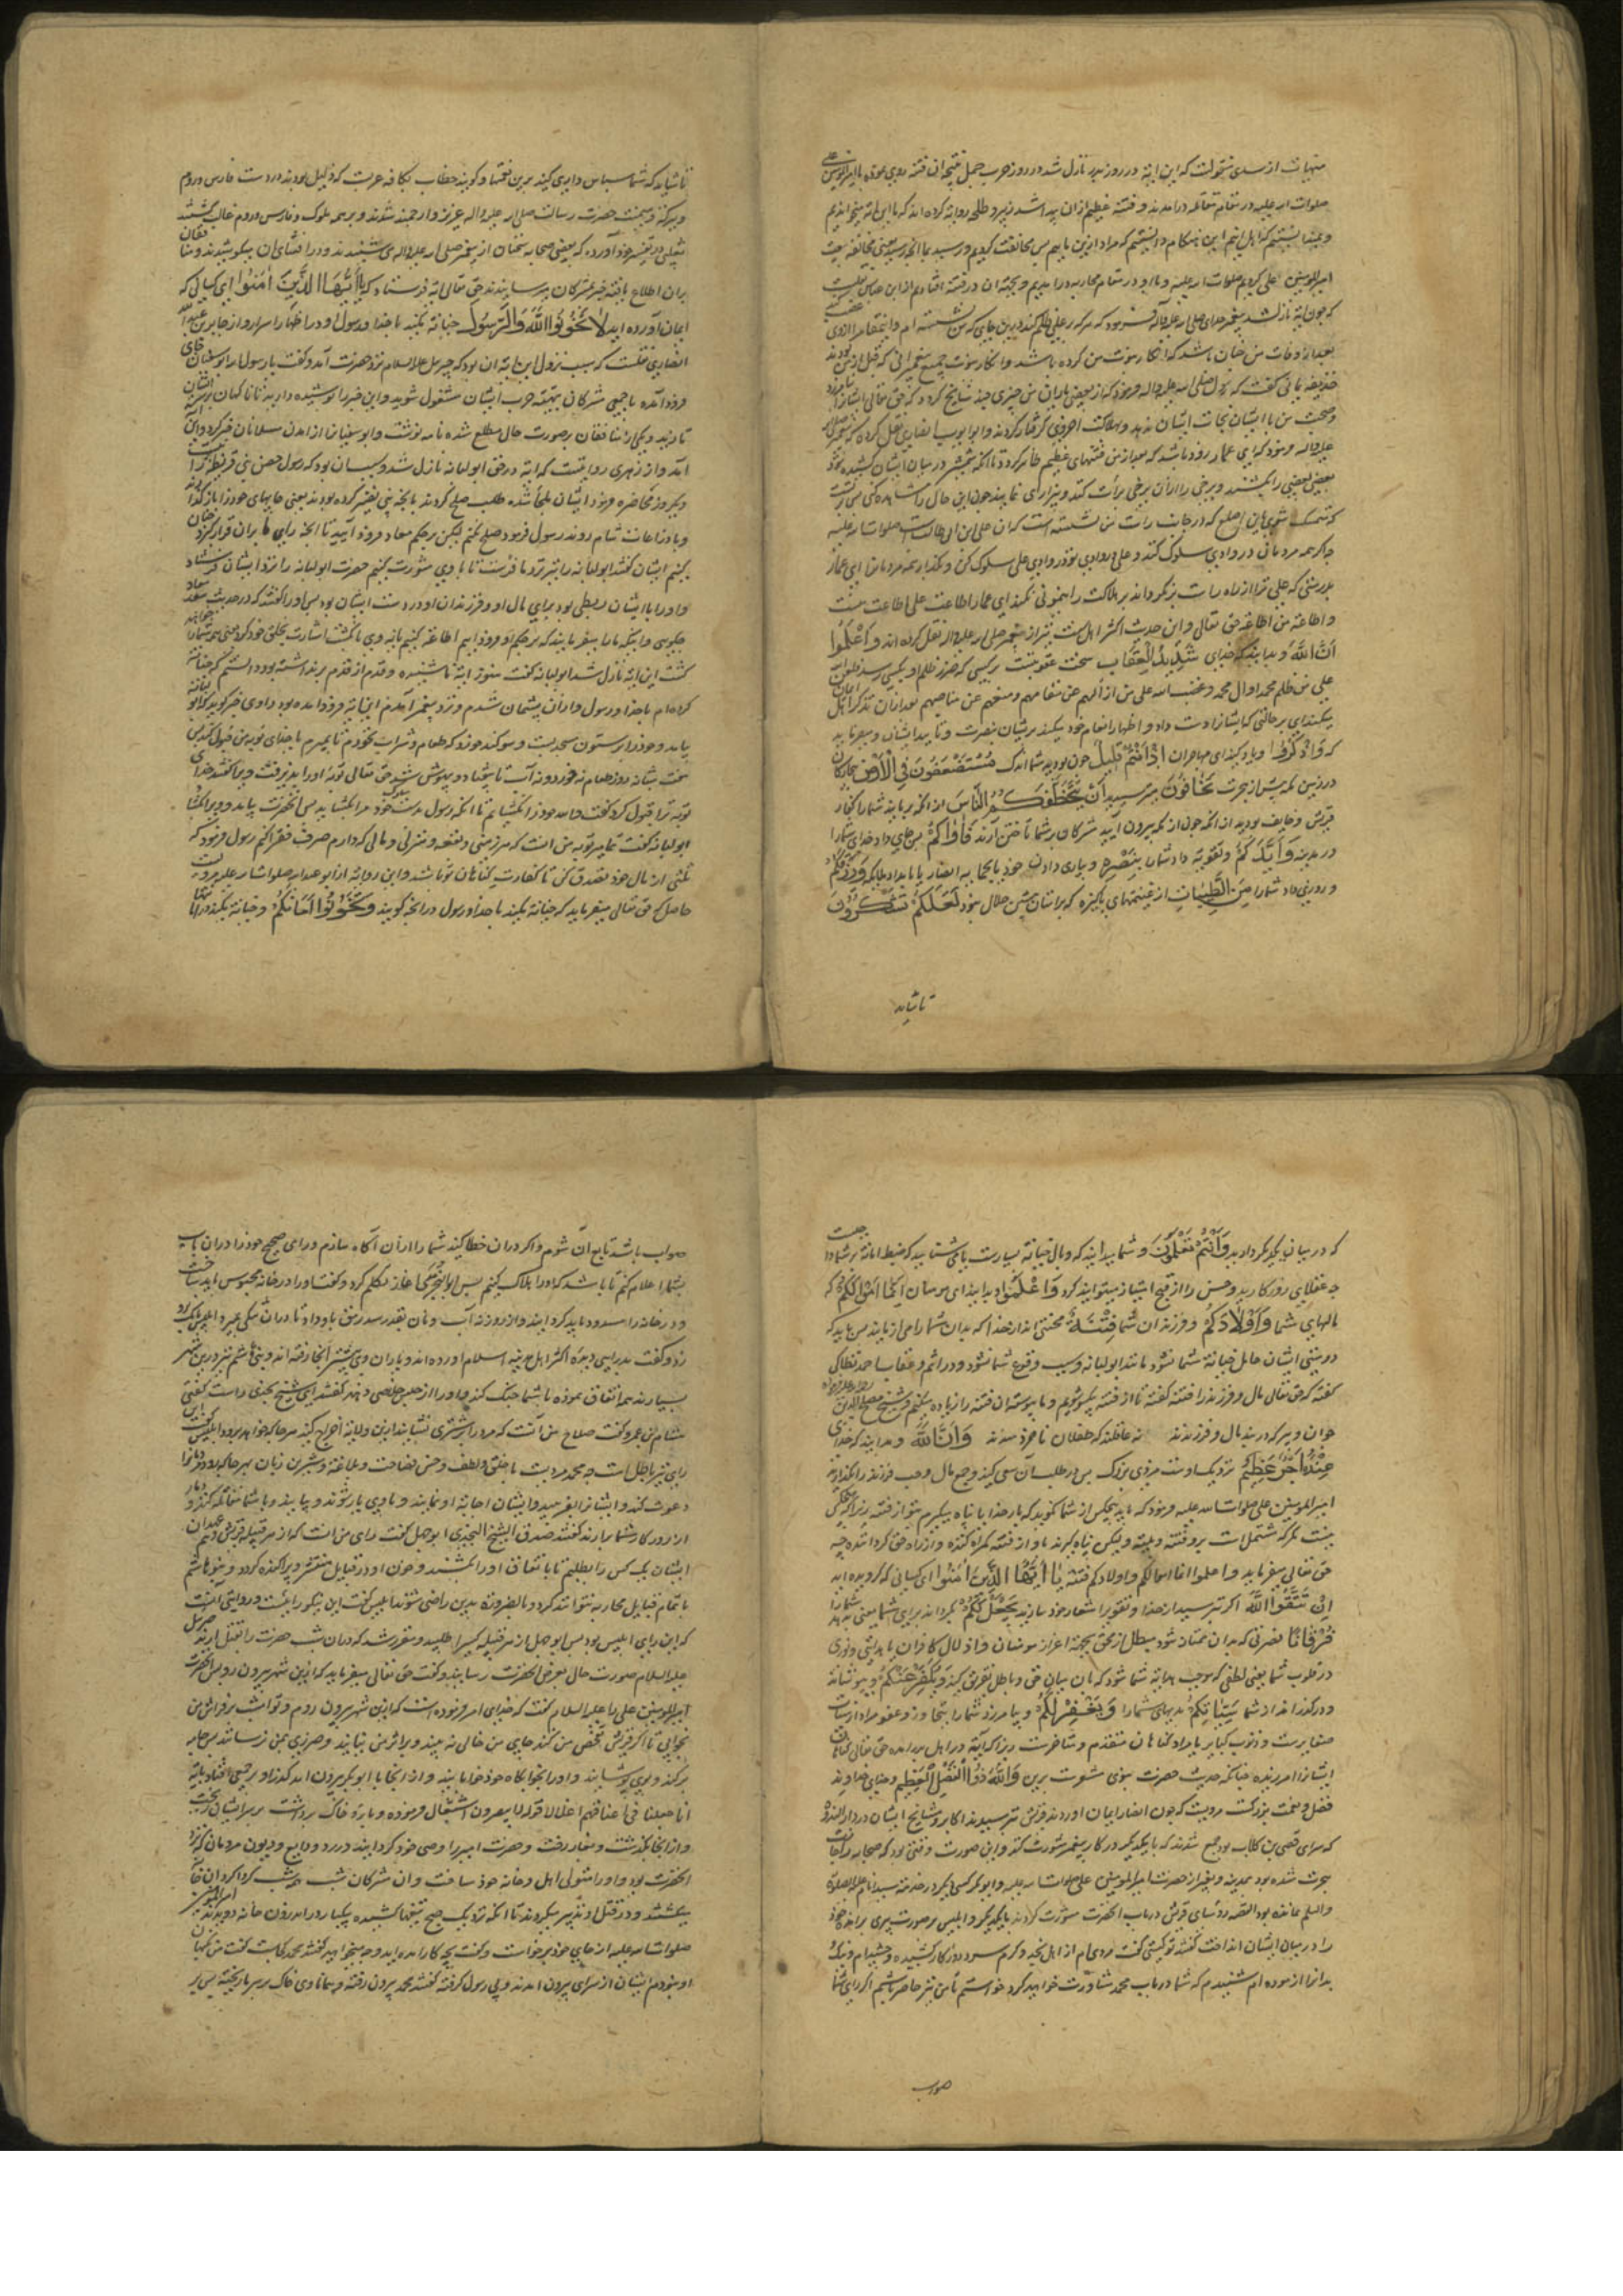 منهیات از سدی منقولست که این ایة در روز بدر نازل شد و در روز حرب جمل
صلوات الله علیه در مقام مقاتله درامدند و فتنه عظیم ازان پیدا شد زبیر و طلحه روایة کرده اند که ما این ایة میخواندیم
و نمیدانستیم که اهل ان
امیرالمومنین علی کردیم صلوات الله علیه و با او در مقام محاربه در امدیم و بجهة ان در فتنه افتادیم از ابن عباس
که چون ایة نازل شد پیغمبر خدای صلی الله علیه و آله فرمود که هر که بر علی ظلم کند درین جای که من نشسته ام
بعد از وفات من چنان باشد که انکار نبوت من کرده باشد و انکار نبوت جمیع پیغمبرانی که قبل از من بودند
حذیفه یمانی گفت که رسول صلی الله علیه واله فرمود که از بعضی یاران من چیزی چند سانح گردد که حق تعالی ایشانرا
و صحبت من با ایشان نجات ایشان ندهد و بهلاکت اخروی گرفتار گردند و ابو ایوب انصاری نقل کرده که پیغمبر
علیه واله فرمود که ای عمار زود باشد که بعد از من فتنهای عظیم ظاهر گردد تا انکه شمشیر در میان ایشان کشیده شود
بعضی بعضی را بکشند و برخی را ازان برخی برأت کنند و بیزاری نمایند چون این حال را مشاهده کنی
که تمسک شوی باین اصلع که در جانب راست من نشسته است که ان علی بن ابی طالب است صلوات الله علیه
چه اگر همه مردمان در وادی سلوک کنند و علی در وادی تو در وادی علی سلوک کن و بگذار همه مردمانرا ای عمار
بدرستی که علی ترا از راه راست بر نگرداند و بر هلاکت راهنمونی نکند ای عمار اطاعت علی اطاعت منست
و اطاعة من اطاعة حق تعالی و این حدیث اکثر اهل سنت نیز از پیغمبر صلی الله علیه واله نقل کرده اند وَاعْلَمُوا
اَنَّ اللّٰهَ و بدانید که خدای شَدِیدُ الْعِقَابِ سخت عقوبتست بر کسی که
علی من ظلم محمد اوال محمد و غضب الله علی من ازالهم عن مقامهم و منعهم عن مناصبهم بعد ازان تذکر اهل
میکند ای بر حالتی که ایشانرا دست داد و اظهار انعام خود میکند بریشان بنصرت و تایید ایشان و میفرماید
که وَاذْکُرُوا و یاد کنید ای مهاجران اِذْ اَنْتُمْ قَلِیلٌ چون بودید شما اندک مُسْتَضْعَفُونَ فِی الْاَرْضِ
در زمین مکه پیش از هجرت تَخَافُونَ میترسیدید اَنْ یَتَخَطَّفَکُمُ النَّاسُ از انکه بربایند شما را کفار
قریش و خایف بودید از انکه چون از مکه بیرون آیید مشرکان بر شما تاختن آرند فَاٰوٰیکُمْ پس جای داد خدای شما را
در مدینه وَاَیَّدَکُمْ و تقویة داد شما را بِنَصْرِهِ و بیاری دادن خود یا بمحابه انصار یا بامداد ملایکه وَرَزَقَکُمْ
و روزی داد شما را مِنَ الطَّیِّبَاتِ از غنیمتهای پاکیزه که بر امتان پیشین حلال نبود لَعَلَّکُمْ تَشْکُرُونَ
تا شاید
تا شاید که شما سپاس داری کنید برین نعمتها و گویند خطاب بکافه عربست که ذلیل بودند در دست فارس و روم
و ببرکة و میمنت حضرت رسالت صلی الله علیه واله عزیز و ارجمند شدند و بر همه ملوک و فارس و روم غالب گشتند
ثعلبی در تفسیر خود آورده که بعضی صحابه سخنان از پیغمبر صلی الله علیه واله می شنیدند و در افشای ان میکوشیدند و منافقان
بران اطلاع یافته خبر بمشرکان میرسانیدند حق تعالی ایة فرستاد که یَا اَیُّهَا الَّذِینَ اٰمَنُوا ای کسانی که
ایمان آورده اید لَا تَخُونُوا اللّٰهَ وَالرَّسُولَ خیانة نکنید با خدا و رسول او در اظهار اسرار و از جابر بن عبدالله
انصاری نقلست که سبب نزول این ایة ان بود که جبرییل علیه السلام نزد حضرت آمد و گفت یا رسول الله ابو سفیان
فرود آمده با جمعی مشرکان بتهیه حرب ایشان مشغول شوید و این خبر را پوشیده دارید تا ناگهان بر سر ایشان
تازند و یکی از منافقان بر صورت حال مطلع شده نامه نوشت و ابو سفیانرا از امدن مسلمانان خبر کرد و این آیة
آمد و از زهری روایتست که ایة در حق ابو لبابه نازل شد و سبب ان بود که رسول حصن بنی قریظه را
و بادرعات شام روند رسول فرمود صلح نکنم لیکن بر حکم سعد معاد فرود آیید
نکنیم ایشان گفتند ابو لبابه را نزد ما فرست تا با وی مشورت کنیم حضرت ابو لبابه را نزد ایشان فرستاد
و او را با ایشان ربطی بود برای مال او و فرزندان او در دست ایشان بود پس او را گفتند که
گشت این ایة نازل شد ابو لبابه گفت هنوز ایة ناشنیده و قدم از قدم بر نداشته بودم دانستم که خیانة
کرده ام با خدا و رسول و ازان پشیمان شدم و نزد پیغمبر آمدم این ایة فرود آمده بود
بیامد و خود را بر ستون مسجد بست و سوگند خورد که طعام و شراب نخورم تا بمیرم یا خدای توبه من قبول کند
هفت شبانه روز طعام نخورد و نه آب تا بیفتاد و بیهوش شد حق تعالی توبه او را بپذیرفت و ویرا گفتند خدای
توبه ترا قبول کرد گفت والله خود را نگشایم تا انکه رسول بدست خود مرا بگشاید پس انحضرت بیامد و ویرا بگشاد
ابو لبابه گفت تمامی توبه من انست که سرزمینی و ضیعه و منزلی و مالی که دارم صرف فقرا کنم رسول فرمود که
ثلثی از مال خود تصدق کن تا کفارت گناهان تو باشد و این روایة از ابو عبدالله صلوات الله علیه مرویست
حاصل که حق تعالی میفرماید که خیانة نکنید با خدا و رسول در انچه گویند وَتَخُونُوا اَمَانَاتِکُمْ و خیانة نکنید در امانتها
که در میان یکدیگر دارید وَاَنْتُمْ تَعْلَمُونَ و شما میدانید که وبال خیانة بسیارست
چه عقلای روزگارید و حسن را از قبح امتیاز میتوانید کرد وَاعْلَمُوا و بدانید ای مومنان اَنَّمَا اَمْوَالُکُمْ که
مالهای شما وَاَوْلَادُکُمْ و فرزندان شما فِتْنَةٌ محنتی اند از خدا که بدان شما را می ازماید پس باید که
دوستی ایشان حامل خیانة شما نشود مانند ابو لبابه و سبب وقوع شما نشود در اثم و عقاب
گفته که حق تعالی مال و فرزند را فتنه گفته تا از فتنه یکسو شویم و ما پیوسته ان فتنه را زیاده میکنیم
جوان و پیر که در بند مال و فرزندند نه عاقلند که طفلان ناخردمندند وَاَنَّ اللّٰهَ و بدانید که خدای
عِنْدَهُ اَجْرٌ عَظِیمٌ نزدیک اوست مزدی بزرگ پس در طلب آن سعی کنید و جمع مال و حب فرزند را بگذارید
امیرالمومنین علی صلوات الله علیه فرمود که باید هیچکس از شما نگوید که بار خدایا پناه میگیرم بتو از فتنه زیرا که هیچکس
نیست مگر که مشتملست بر فتنه و بلیة و لیکن پناه گیرند باو از فتنه گمراه کننده و از راه حق گرداننده چه
حق تعالی میفرماید واعلموا انما اموالکم واولادکم فتنة یَا اَیُّهَا الَّذِینَ اٰمَنُوا ای کسانی که گرویده اید
اِنْ تَتَّقُوا اللّٰهَ اگر بترسید از خدا و تقوی را شعار خود سازید یَجْعَلْ لَکُمْ گرداند برای شما
فُرْقَانًا نصرتی که بدان ممتاز شود مبطل از محق بجهة اعزاز مومنان و اذلال کافران یا هدایتی و نوری
در قلوب شما یعنی لطفی که موجب هدایة شما شود که بان میان حق و باطل تفریق کنید وَیُکَفِّرْ عَنْکُمْ و بپوشاند
و در گذراند از شما سَیِّئَاتِکُمْ بدیهای شما را وَیَغْفِرْ لَکُمْ و بیامرزد شما را بتجاوز و عفو
صغایرست و ذنوب کبایر یا مراد گناهان متقدم و متاخرست زیرا که آیة در اهل بدر آمده حق تعالی گناهان
ایشانرا امرزیده چنانکه حدیث حضرت نبوی مثبوت برین وَاللّٰهُ ذُو الْفَضْلِ الْعَظِیمِ و خدای خداوند
فضل و نعمت بزرگست مرویست که چون انصار ایمان اوردند قریش بترسیدند اکابر و مشایخ ایشان در دار الندوه
که سرای قصی بن کلاب بود جمع شدند که با یکدیگر در کار پیغمبر مشورت کنند و این صورت وقتی بود که صحابه را اجازت
هجرت شده بود بمدینه و بغیر از حضرت امیرالمومنین علی صلوات الله علیه و ابوبکر کسی دیگر در خدمت سید انام علیه الصلوة
والسلم نمانده بود القصه رؤسای قریش در باب انحضرت مشورت کردند با یکدیگر و ابلیس بر صورت پیری بر امده خود
را در میان ایشان انداخت گفتند تو کیستی گفت مردی ام از اهل نجد و گرم و سرد روزگار کشیده و چشیده ام و نیک
بد انرا ازموده ام شنیدم که شما در باب محمد مشاورت خواهید کرد خواستم تا من نیز حاضر باشم اگر رای شما
صواب
صواب باشد تابع آن شوم و اگر در ان خطا کنید شما را ازان آگاه سازم و رای صحیح خود را دران باب
بشما اعلام کنم تا باشد که او را هلاک کنیم پس ابو البختری آغاز تکلم کرد و گفت او را در خانه محبوس باید ساخت
و در خانه را مسدود باید گردانید و از روزنه آب و نان بقدر سد رمق باو داد تا دران تنگی بمیرد ابلیس بانگ
زد و گفت بد رایی دیدۀ اکثر اهل مدینه اسلام اورده اند و یاران وی بیشتر آنجا رفته اند و بنی هاشم نیز درین شهر
بسیارند همه اتفاق نموده با شما جنگ کنند و او را از حبس خلاصی دهند گفتند ای شیخ نجدی راست گفتی
هشام بن عمرو گفت صلاح من آنست که او را بر شتری نشانید ازین ولایة اخراج کنید هر جا که خواهد برود ابلیس گفت
رای نیز باطل است چه محمد مردیست با خلق و لطف و حسن فصاحت و بلاغة و شیرین زبان بهر جا که رود
دعوت کند و ایشانرا بفریبد و ایشان اجابة او نمایند و با وی یار شوند و بیایند و با شما مقاتله کنند
از روزگار شما برارند گفتند صدق الشیخ النجدی ابو جهل گفت رای من انست که از هر قبیله قریش
ایشان یک کس را بطلبیم تا باتفاق او را بکشند و خون او در قبایل منتشر و پراکنده گردد و بنو هاشم
با تمام قبایل محاربه نتوانند کرد و بالضروره بدیت راضی شوند ابلیس گفت این نیکو رایست و روایتی آنست
که این رای ابلیس بود پس ابو جهل از هر قبیله یکیرا طلبید و مقرر شد که دران شب حضرت را بقتل ارند
علیه السلام صورت حال بعرض انحضرت رسانید و گفت حق تعالی میفرماید که ازین شهر بیرون رو
امیرالمومنین علی را علیه السلام گفت که خدای امر فرموده است که ازین شهر بیرون روم و تو امشب بر فراش من
بخوابی تا اگر قریش تفحص من کنند جای من خالی نه بینند و بر اثر من نیایند و ضرری بمن نرسانند پس جامه
بر کند و بوی پوشانید و او را بخوابگاه خود خوابانید و از انجا با ابوبکر بیرون امد
انا جعلنا فی اعناقهم اغلالا قوله لا یبصرون اشتغال فرموده و پارۀ خاک برداشت بر سر ایشان ریخت
و از انجا بگذشت و بغار رفت و حضرت امیر را وصی خود گردانید در رد ودایع و دیون مردمان که نزد
انحضرت بود و او را متولی اهل و خانه خود ساخت و ان مشرکان شب همه شب گرداگرد ان خانه
میگشتند و در قتل او تدبیر میکردند تا انکه نزدیک صبح تیغها کشیده بیکبار در اندرون خانه دویدند
صلوات الله علیه از جای خود برخاست و گفت بچه کار امده اید و چه میخواهید گفتند محمد کجاست گفت من نگهبان
او نبودم ایشان از سرای بیرون امدند و پی رسول گرفته گفتند محمد بیرون رفته و همانا وی خاک بر سر ما ریخته